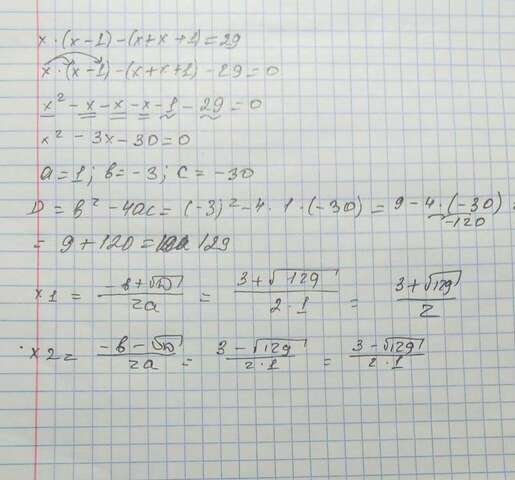 x · (x-1) - (x+x+1) = 29
x · (x-1) - (x+x+1) - 29 = 0
x² - x - x - x - 1 - 29 = 0
x² - 3x - 30 = 0
a = 1; b = -3; c = -30
D = b² - 4ac = (-3)² - 4 · 1 · (-30) = 9 - 4 · (-30) =
-120
= 9 + 120 = 129
x1 = (-b+√D)/2a = (3+√129)/(2·1) = (3+√129)/2
x2 = (-b-√D)/2a = (3-√129)/(2·1) = (3-√129)/(2·1)